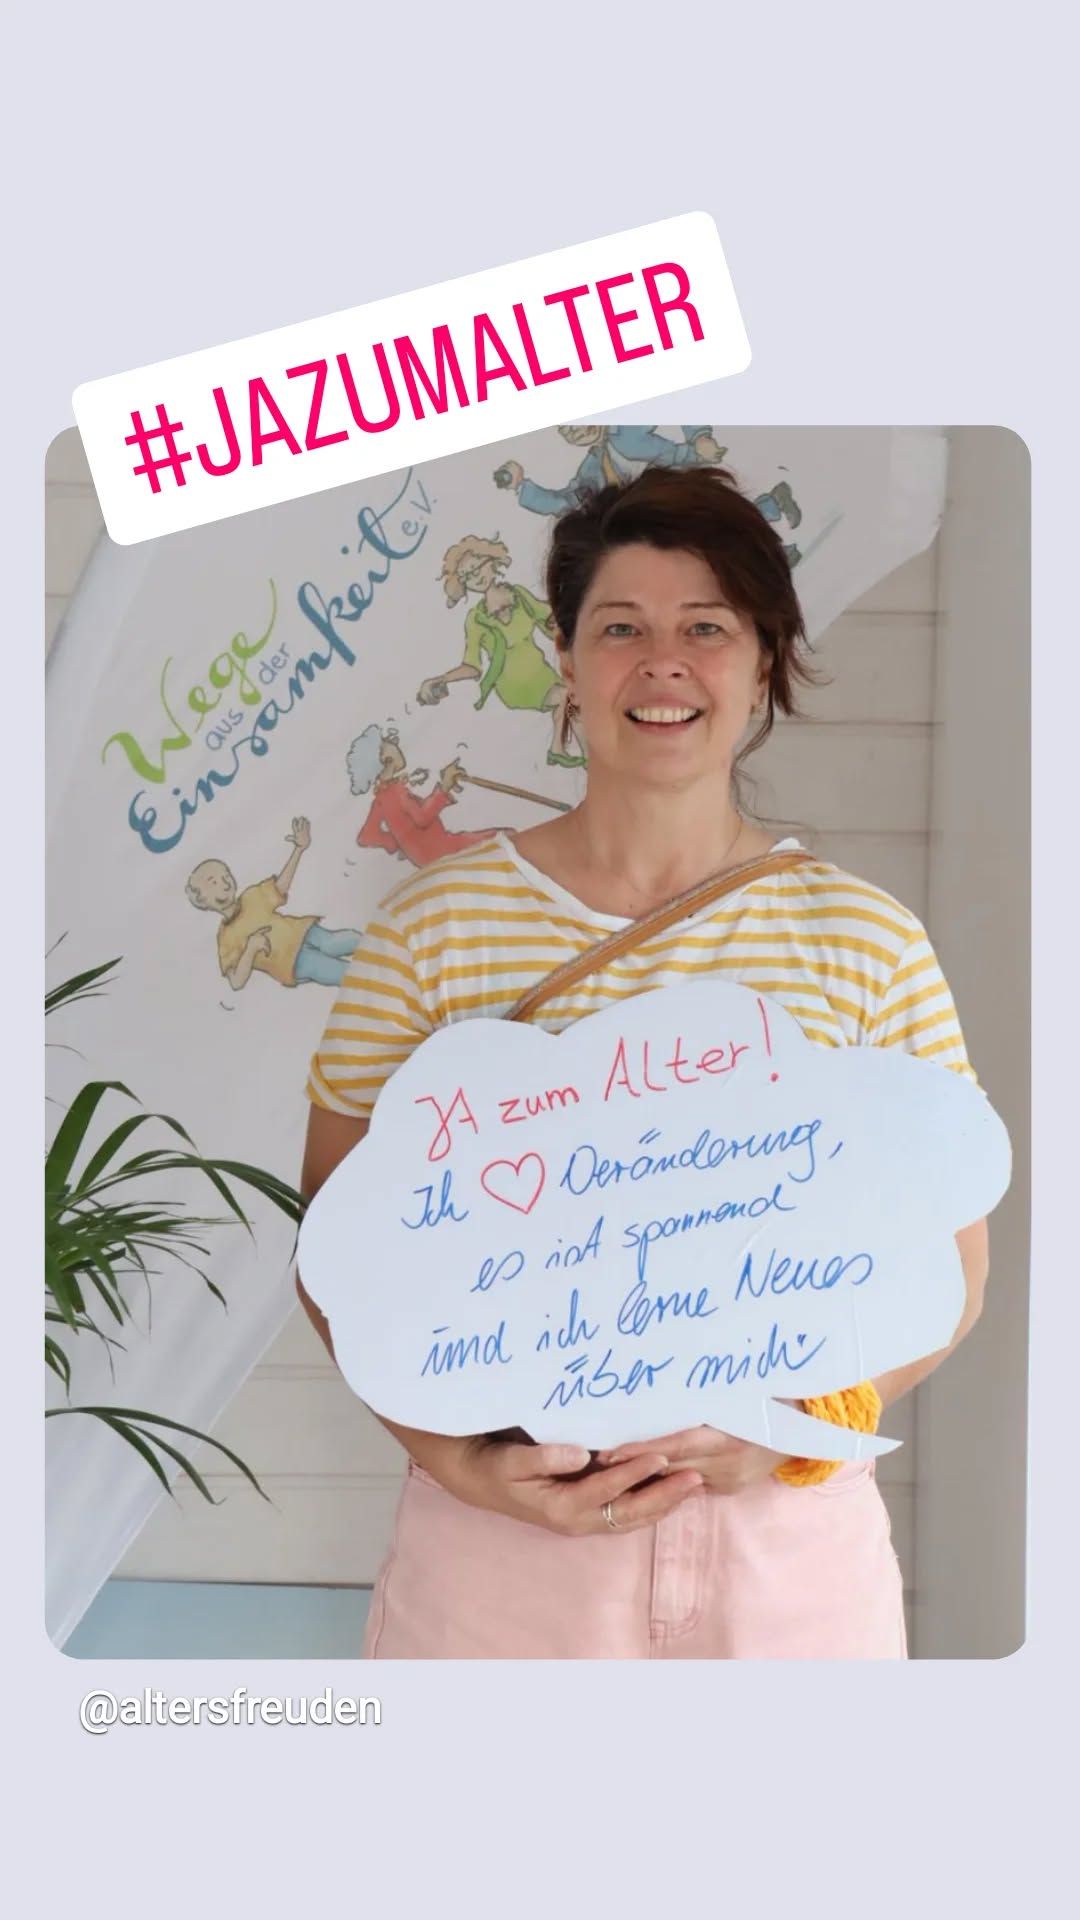 #JAZUMALTER
Wege
aus der
Einsamkeit e.V.
JA zum Alter!
Ich ♡ Veränderung,
es ist spannend
und ich lerne Neues
über mich
@altersfreuden